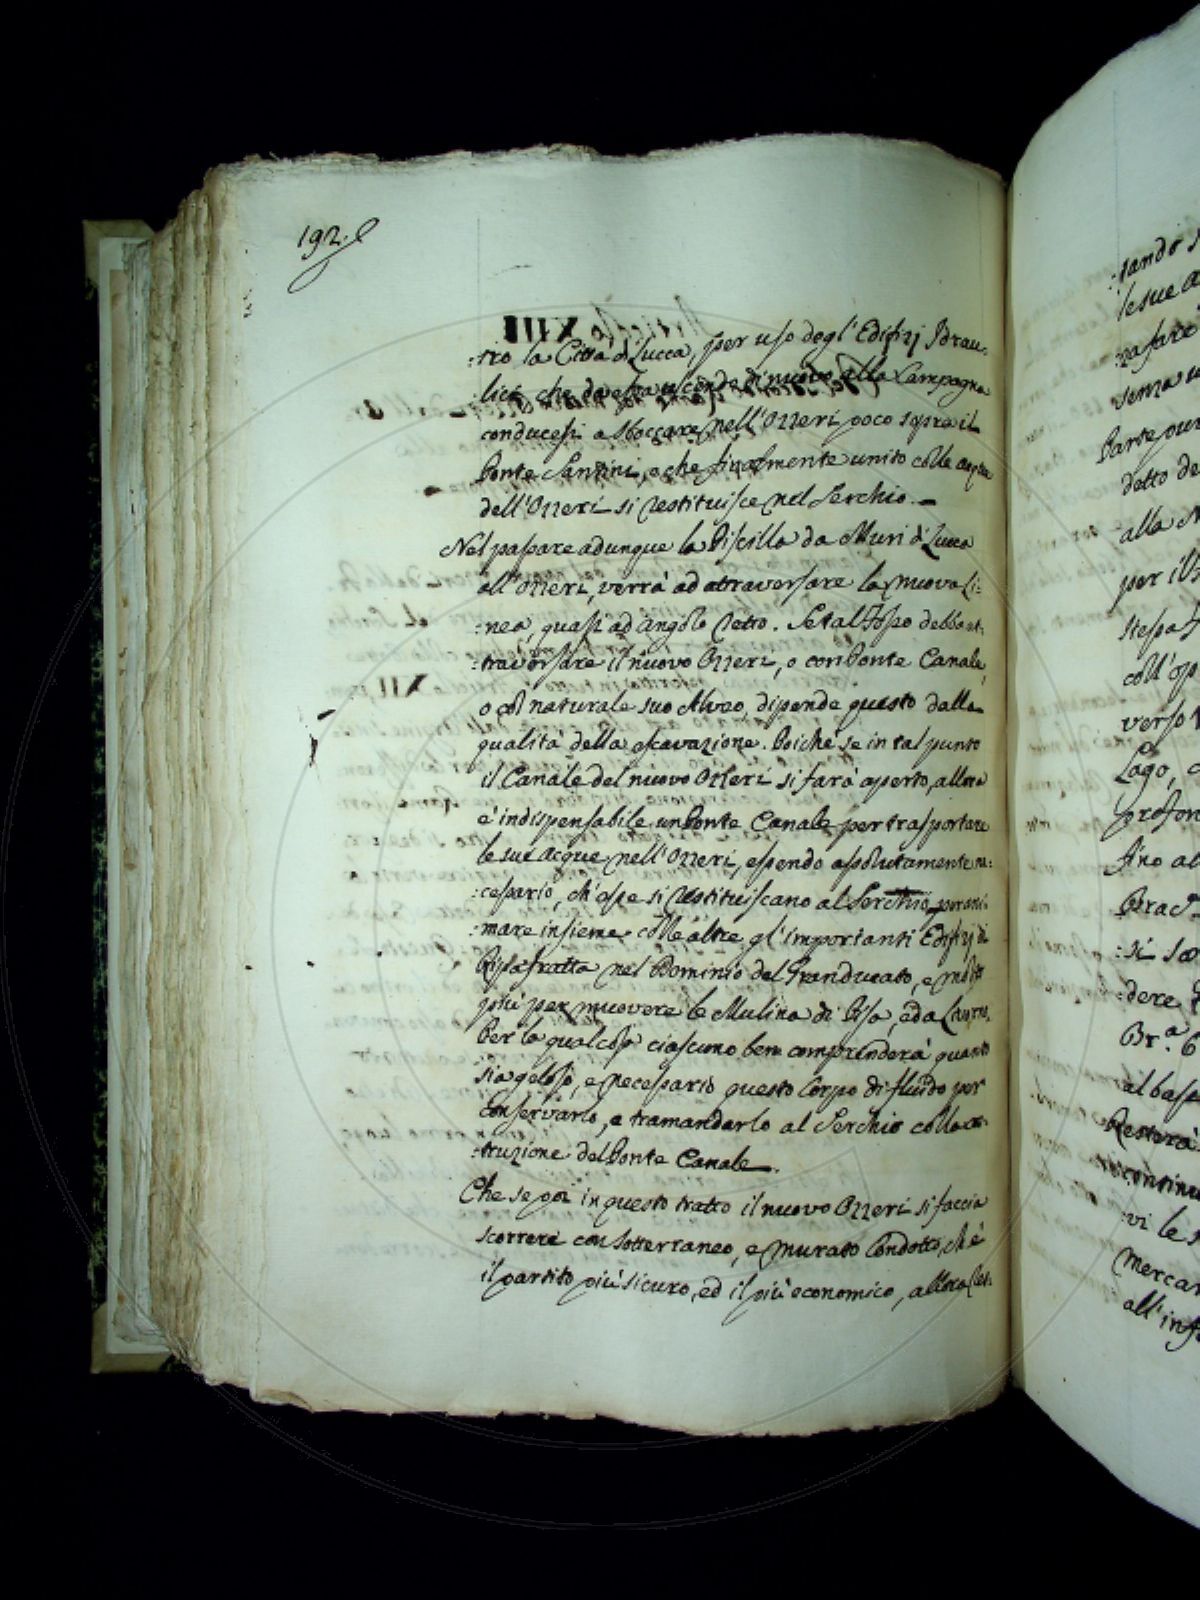 192.
:tro la Città di Lucca, per uso degl' Edifizj Idrau:
:lici che da essa esconde di nuovo alla Campagna
conducesi a sboccare nell'Ozzeri poco sopra il
Ponte Santini, e che finalmente unito colle acque
dell'Ozzeri si restituisce nel Serchio.
Nel passare adunque la Piscilla da Muri di Lucca
all'Ozzeri, verrà ad attraversare la nuova li:
:nea, quasi ad angolo retto. Se tal Fosso debba at:
:traversare il nuovo Ozzeri, o con Ponte Canale,
o col naturale suo Alveo, dipende questo dalla
qualità della escavazione. Poiche se in tal punto
il Canale del nuovo Ozzeri si farà aperto, allora
è indispensabile un Ponte Canale per trasportare
le sue acque nell'Ozzeri, essendo assolutamente ne:
:cessario, ch'esse si restituiscano al Serchio per ani:
:mare insieme colle altre gl'importanti Edifizj di
Ripafratta nel Dominio del Granducato, e molto
più per muovere le Mulina di Pisa, ed a Livorno.
Per la qual cosa ciascuno ben comprenderà quanto
sia geloso, e necessario questo Corpo di fluido per
conservarlo, e tramandarlo al Serchio colla cos:
:truzione del Ponte Canale.
Che se poi in questo tratto il nuovo Ozzeri si faccia
scorrere con sotterraneo, e murato Condotto, ch'è
il partito più sicuro, ed il più economico, allora
:tando
le sue
:ra fare
senza
Parte
detto
alla
per il
stessa
coll'
verso
Lago,
profon
fino al
Brac.ª
:si
:dere
Br.ª 6
al bas
Resterà
continu
:vi le
mercan
all'inf